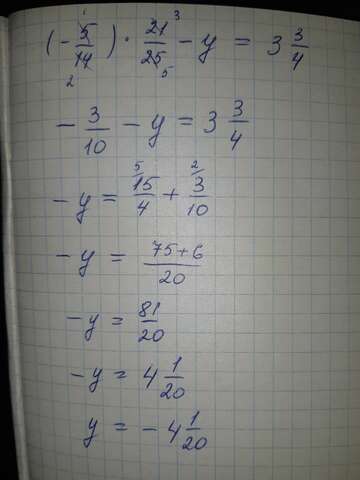 (-5/14) · 21/25 - y = 3 3/4
-3/10 - y = 3 3/4
-y = 15/4 + 3/10
-y = 75+6/20
-y = 81/20
-y = 4 1/20
y = -4 1/20